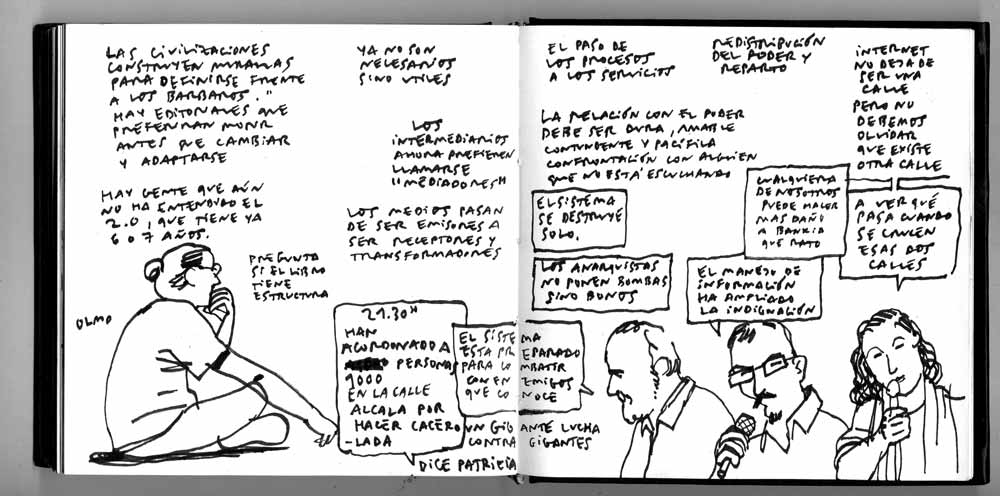 LAS CIVILIZACIONES
CONSTRUYEN MURALLAS
PARA DEFINIRSE FRENTE
A LOS BARBAROS."
HAY EDITORIALES QUE
PREFERIRIAN MORIR
ANTES QUE CAMBIAR
Y ADAPTARSE
HAY GENTE QUE AÚN
NO HA ENTENDIDO EL
2.0, QUE TIENE YA
6 O 7 AÑOS.
OLMO
PREGUNTA
SI EL LIBRO
TIENE
ESTRUCTURA
YA NO SON
NECESARIOS
SINO UTILES
LOS
INTERMEDIARIOS
AHORA PREFIEREN
LLAMARSE
"MEDIADORES"
LOS MEDIOS PASAN
DE SER EMISORES A
SER RECEPTORES Y
TRANSFORMADORES
21.30H
HAN
ACORDONADO A
PERSONAS
1000
EN LA CALLE
ALCALA POR
HACER CACERO
-LADA
DICE PATRICIA
EL SISTEMA
ESTA PREPARADO
PARA COMBATIR
CON ENEMIGOS
QUE CONOCE
UN GIGANTE LUCHA
CONTRA GIGANTES
EL PASO DE
LOS PROCESOS
A LOS SERVICIOS
REDISTRIBUCIÓN
DEL PODER Y
REPARTO
INTERNET
NO DEJA DE
SER UNA
CALLE
PERO NO
DEBEMOS
OLVIDAR
QUE EXISTE
OTRA CALLE
LA RELACIÓN CON EL PODER
DEBE SER DURA, AMABLE
CONTUNDENTE Y PACÍFICA
CONFRONTACIÓN CON ALGUIEN
QUE NO ESTÁ ESCUCHANDO
EL SISTEMA
SE DESTRUYE
SOLO.
CUALQUIERA
DE NOSOTROS
PUEDE HACER
MAS DAÑO
A BANKIA
QUE RATO
A VER QUÉ
PASA CUANDO
SE CRUCEN
ESAS DOS
CALLES
LOS ANARQUISTAS
NO PONEN BOMBAS
SINO BONOS
EL MANEJO DE
INFORMACIÓN
HA AMPLIADO
LA INDIGNACIÓN